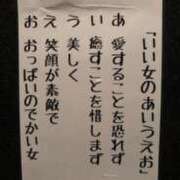 「いい女のあいうえお」
あ 愛することを恐れず
い 癒すことを惜しまず
う 美しく
え 笑顔が素敵で
お おっぱいのでかい女